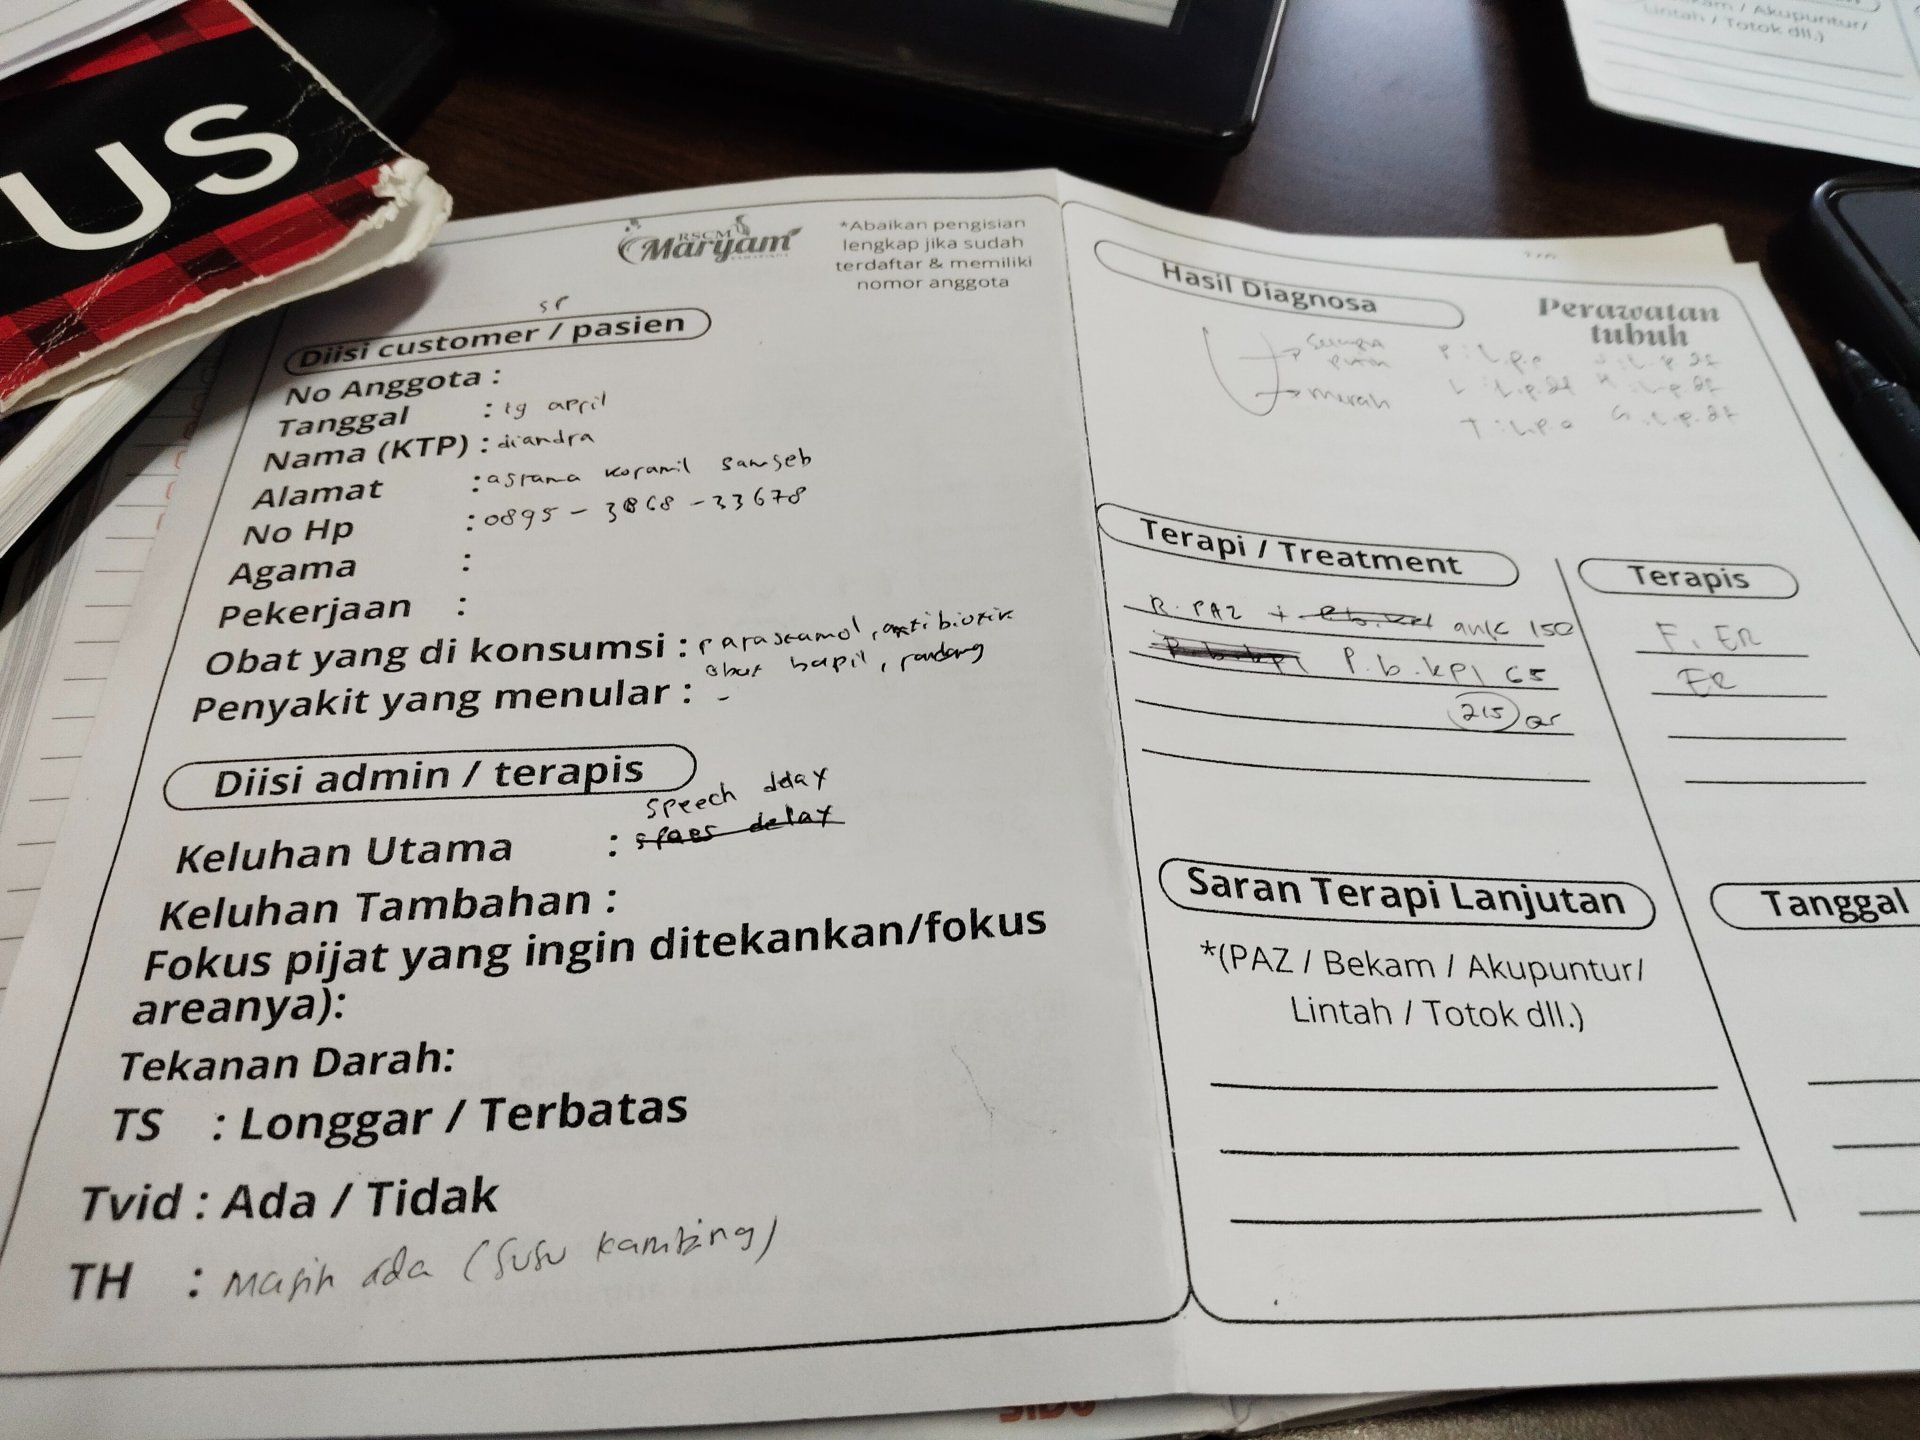 US
RSCM
Maryam
*Abaikan pengisian
lengkap jika sudah
terdaftar & memiliki
nomor anggota
SP
Diisi customer / pasien
No Anggota :
Tanggal : 19 april
Nama (KTP) : diandra
Alamat : asrama koramil samseb
No Hp : 0895 - 3868 - 33678
Agama :
Pekerjaan :
Obat yang di konsumsi : parasetamol, antibiotik
obat bapil,
Penyakit yang menular : -
Diisi admin / terapis
speech delay
Keluhan Utama :
Keluhan Tambahan :
Fokus pijat yang ingin ditekankan/fokus
areanya):
Tekanan Darah:
TS : Longgar / Terbatas
Tvid : Ada / Tidak
TH : Masih ada (susu kambing)
Hasil Diagnosa
Perawatan
tubuh
merah
Terapi / Treatment
R. PAZ + ank 150
P.b.kpl 65
215 qr
Terapis
F. ER
ER
Saran Terapi Lanjutan
*(PAZ / Bekam / Akupuntur/
Lintah / Totok dll.)
Tanggal
Akupuntur/
Lintah / Totok dll.)